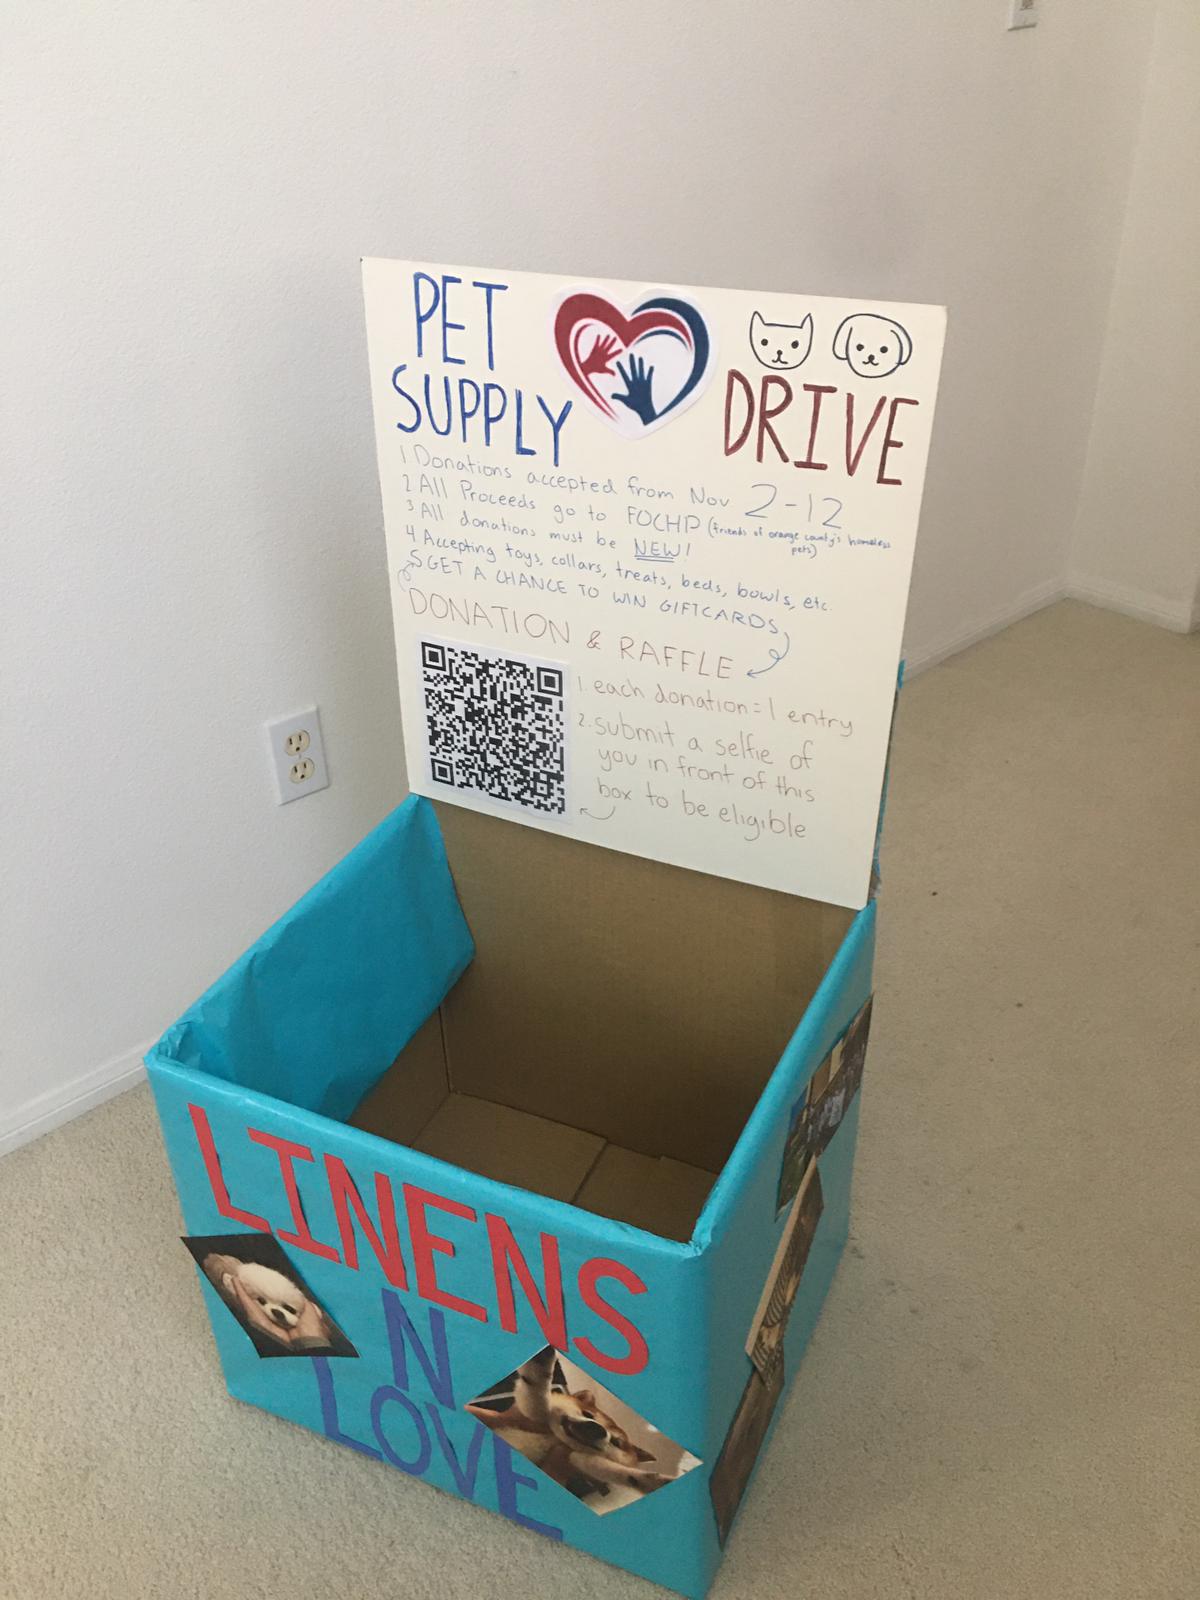 PET
SUPPLY
DRIVE
1 Donations accepted from Nov 2-12
2 All Proceeds go to FOCHP (friends of orange county's homeless
pets)
3 All donations must be NEW!
4 Accepting toys, collars, treats, beds, bowls, etc.
5 GET A CHANCE TO WIN GIFTCARDS
DONATION & RAFFLE
1. each donation = 1 entry
2. submit a selfie of
you in front of this
box to be eligible
LINENS
N
LOVE